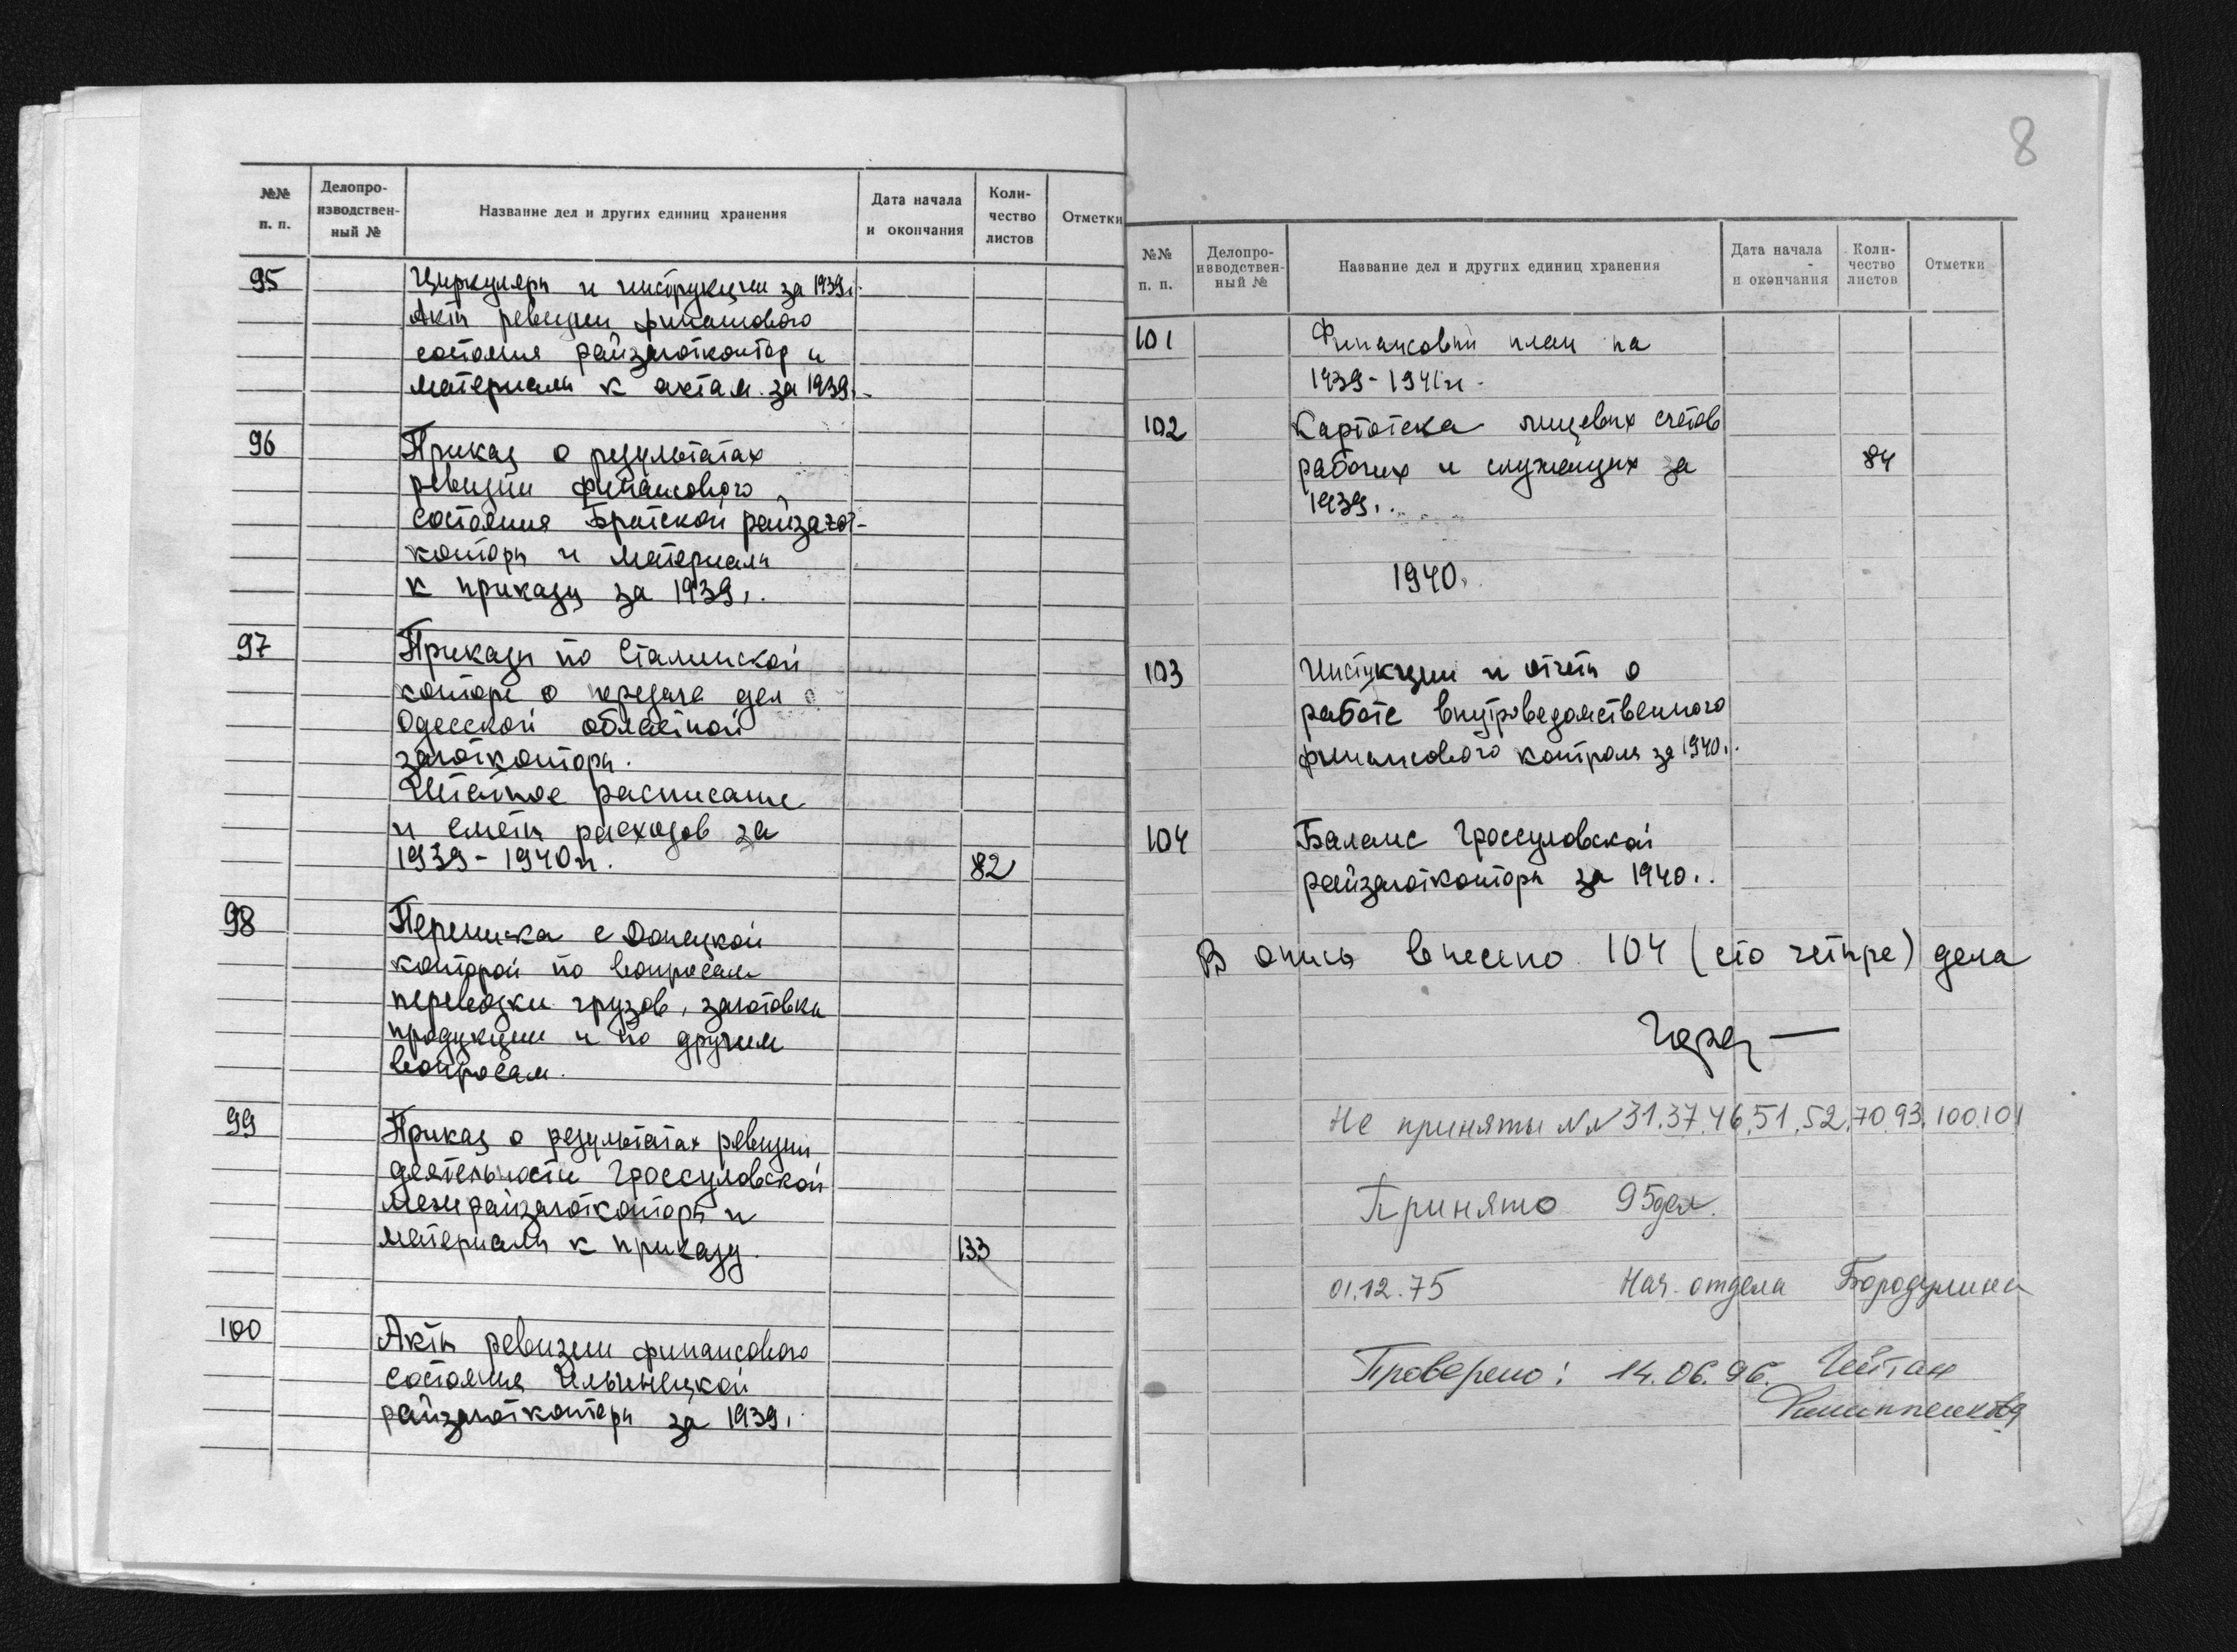 №№ п. п.
Делопро-
изводствен-
ный №
Название дел и других единиц хранения
Дата начала
и окончания
Коли-
чество
листов
Отметки
95
Циркуляры и инструкции за 1939г.
Акты ревизии финансового
состояния райзаготконтор и
материалы к актам за 1939г.
96
Приказ о результатах
ревизии финансового
состояния Братской райзагот-
конторы и материалы
к приказу за 1939г.
97
Приказы по Сталинской
конторе о передаче дел
Одесской областной
заготконторы.
Штатное расписание
и сметы расходов за
1939-1940гг.
82
98
Переписка с Донецкой
конторой по вопросам
перевозки грузов, заготовки
продукции и по другим
вопросам.
99
Приказ о результатах ревизии
деятельности Гроссуловской
межрайзаготконторы и
материалы к приказу.
133
100
Акты ревизии финансового
состояния Ильинецкой
райзаготконторы за 1939г.
8
№№ п. п.
Делопро-
изводствен-
ный №
Название дел и других единиц хранения
Дата начала
и окончания
Коли-
чество
листов
Отметки
101
Финансовый план на
1939-1941гг.
102
Картотека лицевых счетов
рабочих и служащих за
84
1939г.
1940г.
103
Инстукции и отчеты о
работе внутриведомственного
финансового контроля за 1940г.
104
Баланс Гроссуловской
райзаготконторы за 1940г.
В опись внесено 104 (сто четыре) дела
Не приняты №№ 31.37.46.51.52.70.93.100.101
Принято 95дел.
01.12.75 Нач. отдела Бородулина
Проверено: 14.06.96.